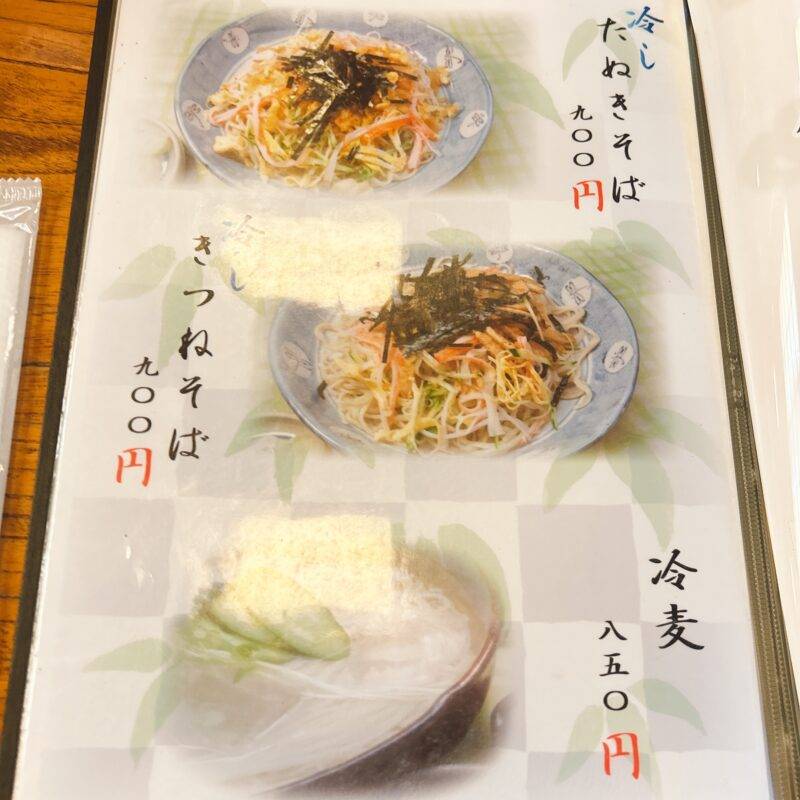 冷し
たぬきそば
九〇〇円
冷し
きつねそば
九〇〇円
冷麦
八五〇円